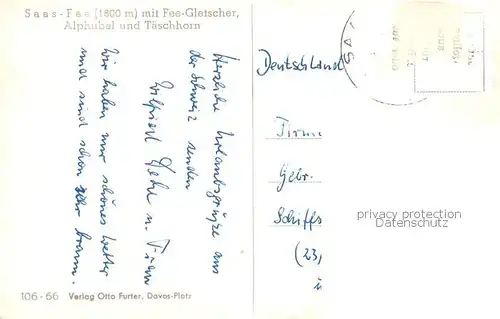 Saas-Fee (1800 m) mit Fee-Gletscher,
Alphubel und Täschhorn
Herzliche Urlaubsgrüße aus
der Schweiz senden
Wilfried u. Frau
Wir haben nur schönes Wetter
und sind schon sehr braun.
Deutschland
Firma
Gebr.
Schiffs
(23,
privacy protection
Datenschutz
106-66 Verlag Otto Furter, Davos-Platz